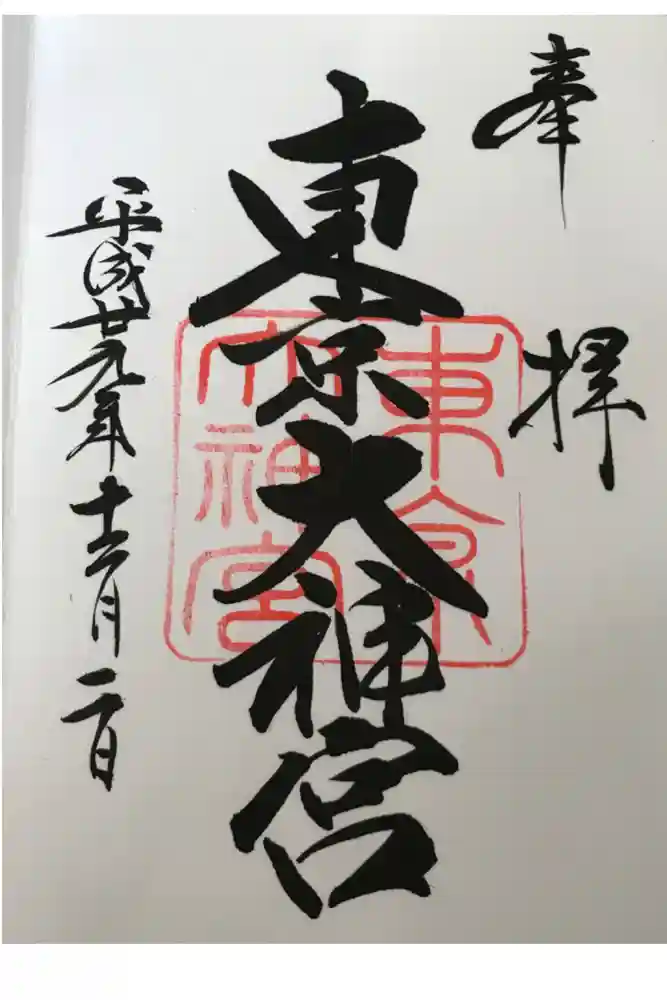 奉拝
東京大神宮
東京大神宮
平成廿九年十二月二日